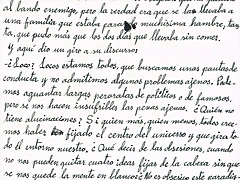 al bando enemigo, pero la verdad era que se las llevaba a
una familia que estaba pasando muchísima hambre, tan-
ta, que pudo más que los dos días que llevaba sin comer.
Y aquí dio un giro a su discurso:
-¿Loco? Locos estamos todos, que buscamos unas pautas de
conducta y no admitimos algunos problemas ajenos. Pode-
mos aguantar largas peroratas de políticos o de famosos,
pero se nos hacen insufribles las penas ajenas. ¿Quién no
tiene alucinaciones? Si quien más, quien menos, todos cree-
mos haber fijado el centro del universo y que gira to-
do él entorno nuestro. ¿Qué decir de las obsesiones, cuando
no nos pueden quitar cuatro ideas fijas de la cabeza sin que
se nos quede la mente en blanco? ¿No es obsesivo este paradig-